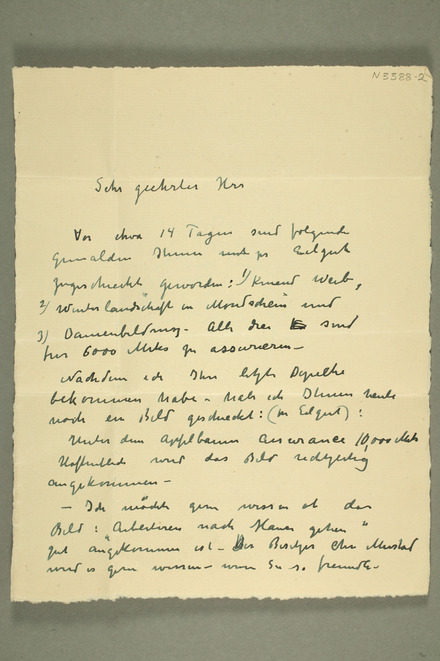 N 3388-2
Sehr geehrter Herr
Vor etwa 14 Tagen sind folgende
Gemälden Ihnen mit Eilgut
geworden: 1) Knieend Weib,
2) Winterlandschaft in Mondschein und
3) Damenbildniss. Alle drei sind
für 6000 Mk zu assurieren –
Nachdem ich Ihr letzte Depesche
bekommen habe – habe ich Ihnen heute
noch ein Bild geschickt: (in Eilgut):
Unter dem Apfelbaum Assurance 10,000 Mk
Hoffentlich wird das Bild rechtzeitig
angekommen –
– Ich möchte gern wissen ob das
Bild: "Arbeitern nach Hause gehen"
gut angekommen ist – Der Besitzer Chr Mustad
will es gern wissen – wenn Sie so freundl-